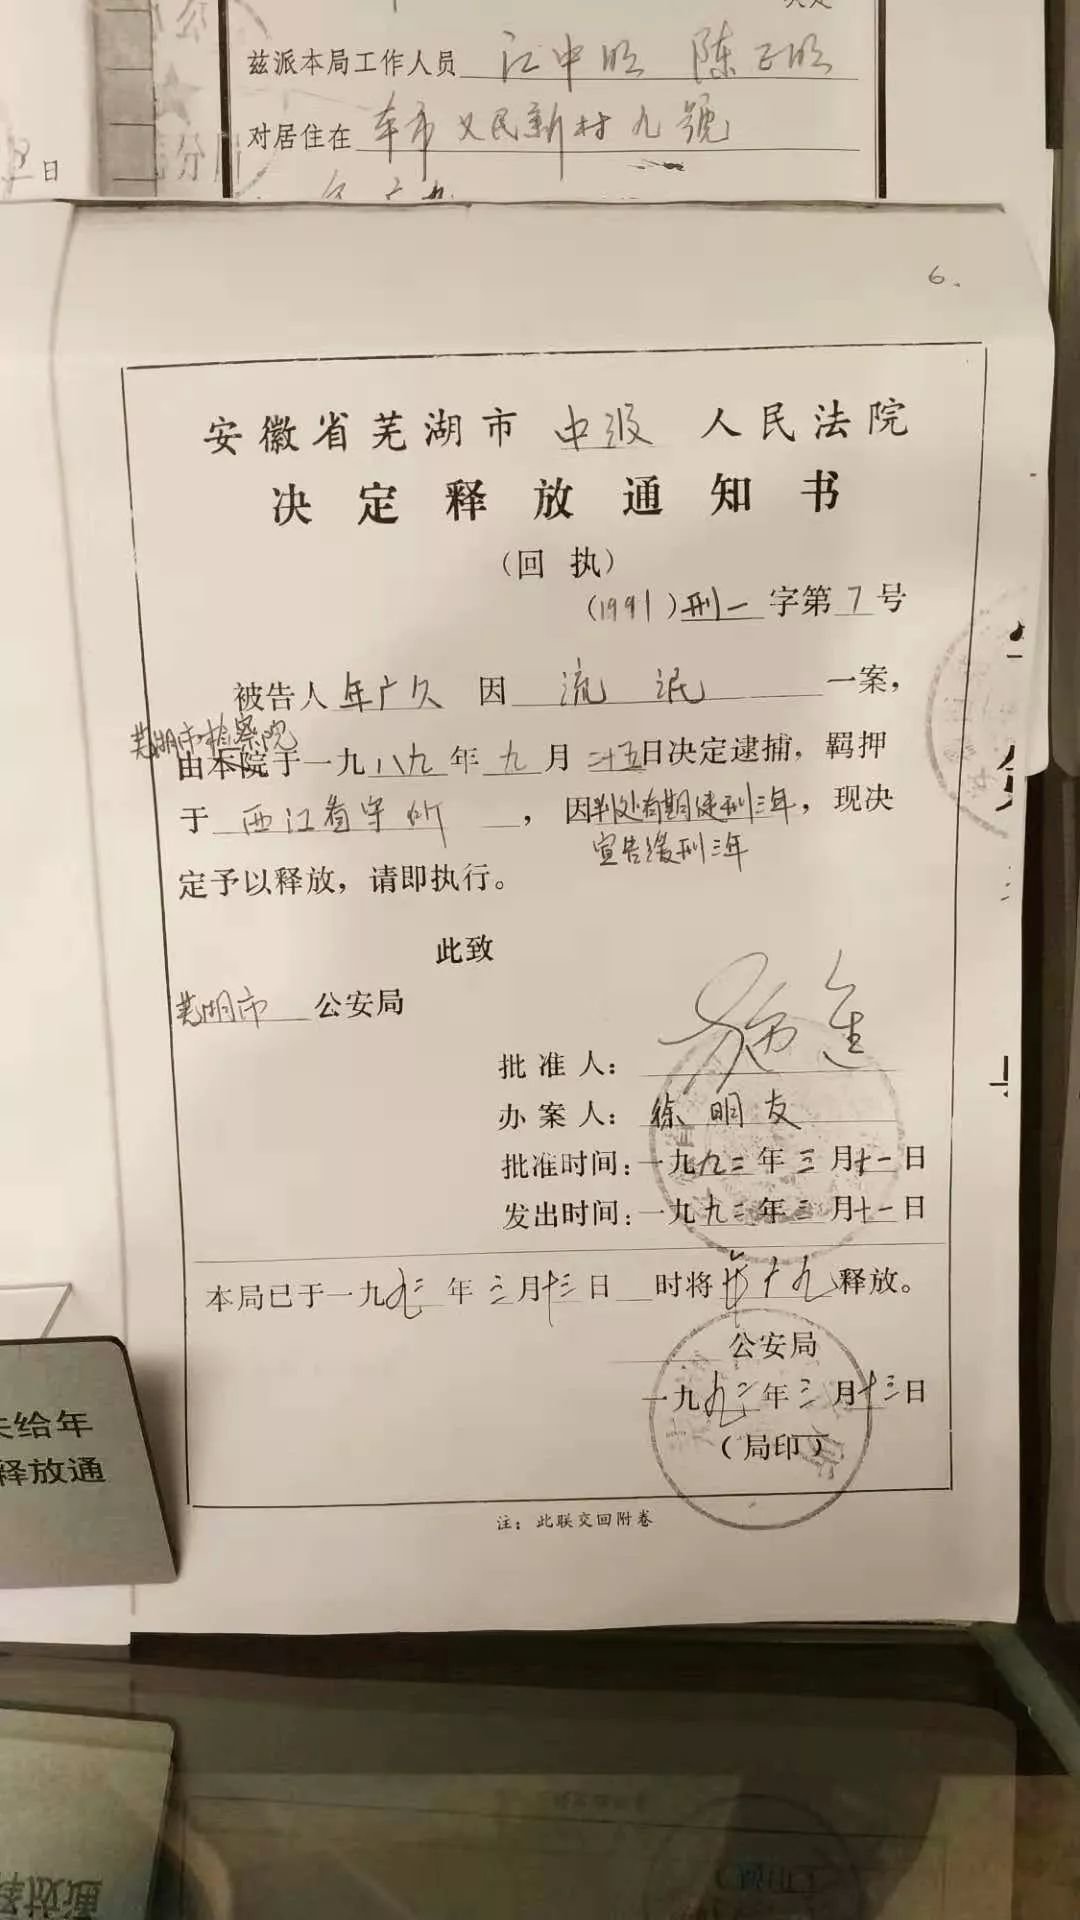 兹派本局工作人员 江中明 陈正明
对居住在 本市 文民新村 九號
日
6.
安徽省芜湖市 中级 人民法院
决定释放通知书
（回 执）
（1991）刑一 字第 7 号
被告人 年广久 因 流 氓 一案，
芜湖市检察院
由本院于一九八九年 九月 二十五日决定逮捕，羁押
于 西江看守所 ，因判处有期徒刑三年，现决
宣告缓刑三年
定予以释放，请即执行。
此致
芜湖市 公安局
批 准 人：
办 案 人：徐明友
批准时间：一九九二年三月十一日
发出时间：一九九二年三月十一日
本局已于一九九二年 三月十三日 时将 年广久 释放。
公安局
一九九二年三月十三日
（局印）
注：此联交回附卷
给年
释放通